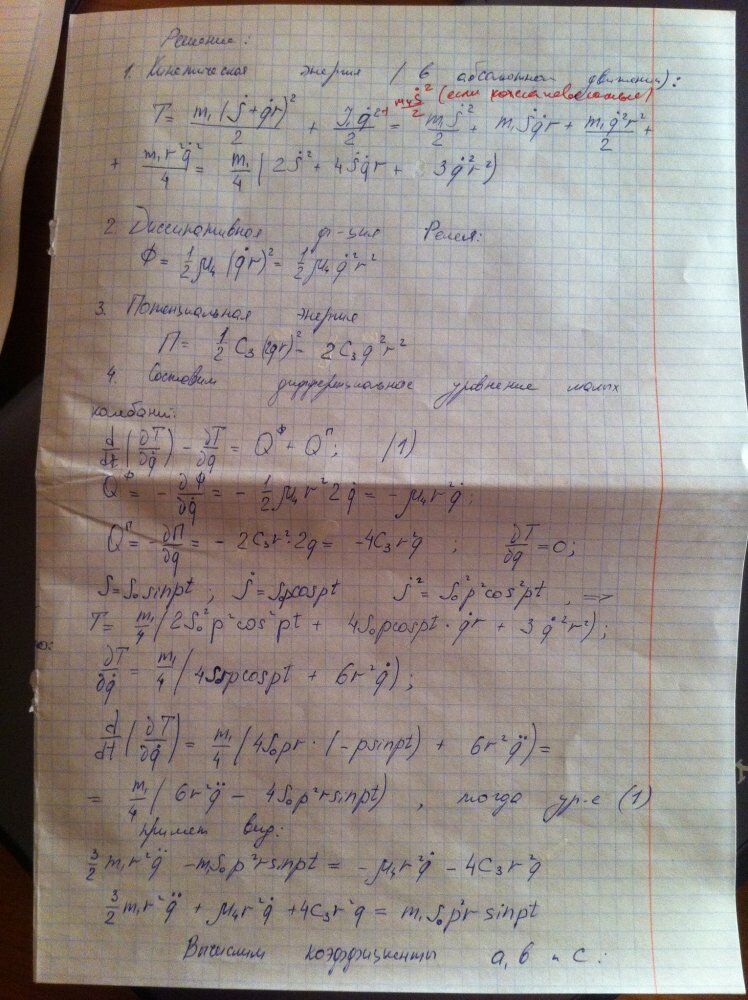 Решение:
1. Кинетическая энергия (в абсолютном движении):
+ m₄ṡ²/2 (если
T = m₁(ṡ+q̇r)²/2 + J₁q̇²/2 = m₁ṡ²/2 + m₁ṡq̇r + m₁q̇²r²/2 +
+ m₁r²q̇²/4 = m₁/4 (2ṡ² + 4ṡq̇r + 3q̇²r²)
2. Диссипативная ф-ция Релея:
Φ = 1/2 μ₄(q̇r)² = 1/2 μ₄q̇²r²
3. Потенциальная энергия
П = 1/2 C₃(2qr)² - 2C₃q²r²
4. Составим дифференциальное уравнение малых
колбаний:
d/dt(∂T/∂q̇) - ∂T/∂q = Q^Φ + Q^П; (1)
Q^Φ = -∂Φ/∂q̇ = -1/2 μ₄r²2q̇ = -μ₄r²q̇;
Q^П = -∂П/∂q = -2C₃r²·2q = -4C₃r²q ; ∂T/∂q = 0;
S = S₀sinpt ; ṡ = S₀pcospt ṡ² = S₀²p²cos²pt , =>
T = m₁/4 (2S₀²p²cos²pt + 4S₀pcospt·q̇r + 3q̇²r²);
∂T/∂q̇ = m₁/4 (4S₀rpcospt + 6r²q̇);
d/dt(∂T/∂q̇) = m₁/4 (4S₀pr·(-psinpt) + 6r²q̈) =
= m₁/4 (6r²q̈ - 4S₀p²rsinpt) , тогда ур-е (1)
примет вид:
3/2 m₁r²q̈ - m₁S₀p²rsinpt = -μ₄r²q̇ - 4C₃r²q
3/2 m₁r²q̈ + μ₄r²q̇ + 4C₃r²q = m₁S₀p²r sinpt
Вычислим коэффициенты a, b и c: